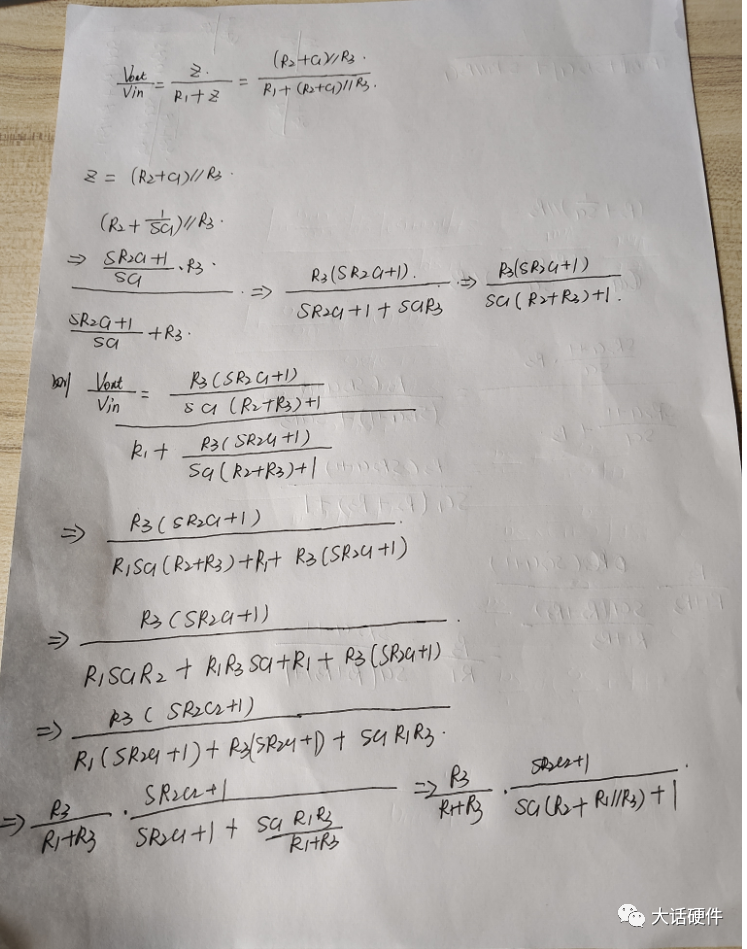 Vout/Vin = Z/(R1+Z) = ((R2+C1)//R3)/(R1+(R2+C1)//R3).
Z = (R2+C1)//R3.
(R2+1/SC1)//R3.
⇒ ((SR2C1+1)/SC1 · R3)/((SR2C1+1)/SC1 + R3) ⇒ R3(SR2C1+1)/(SR2C1+1+SC1R3) ⇒ R3(SR2C1+1)/(SC1(R2+R3)+1).
则 Vout/Vin = (R3(SR2C1+1)/(SC1(R2+R3)+1))/(R1 + R3(SR2C1+1)/(SC1(R2+R3)+1))
⇒ R3(SR2C1+1)/(R1SC1(R2+R3)+R1+R3(SR2C1+1))
⇒ R3(SR2C1+1)/(R1SC1R2+R1R3SC1+R1+R3(SR2C1+1))
⇒ R3(SR2C2+1)/(R1(SR2C1+1)+R3(SR2C1+1)+SC1R1R3)
⇒ R3/(R1+R3) · (SR2C2+1)/(SR2C1+1+SC1R1R3/(R1+R3)) ⇒ R3/(R1+R3) · (SR2C2+1)/(SC1(R2+R1//R3)+1)
大话硬件